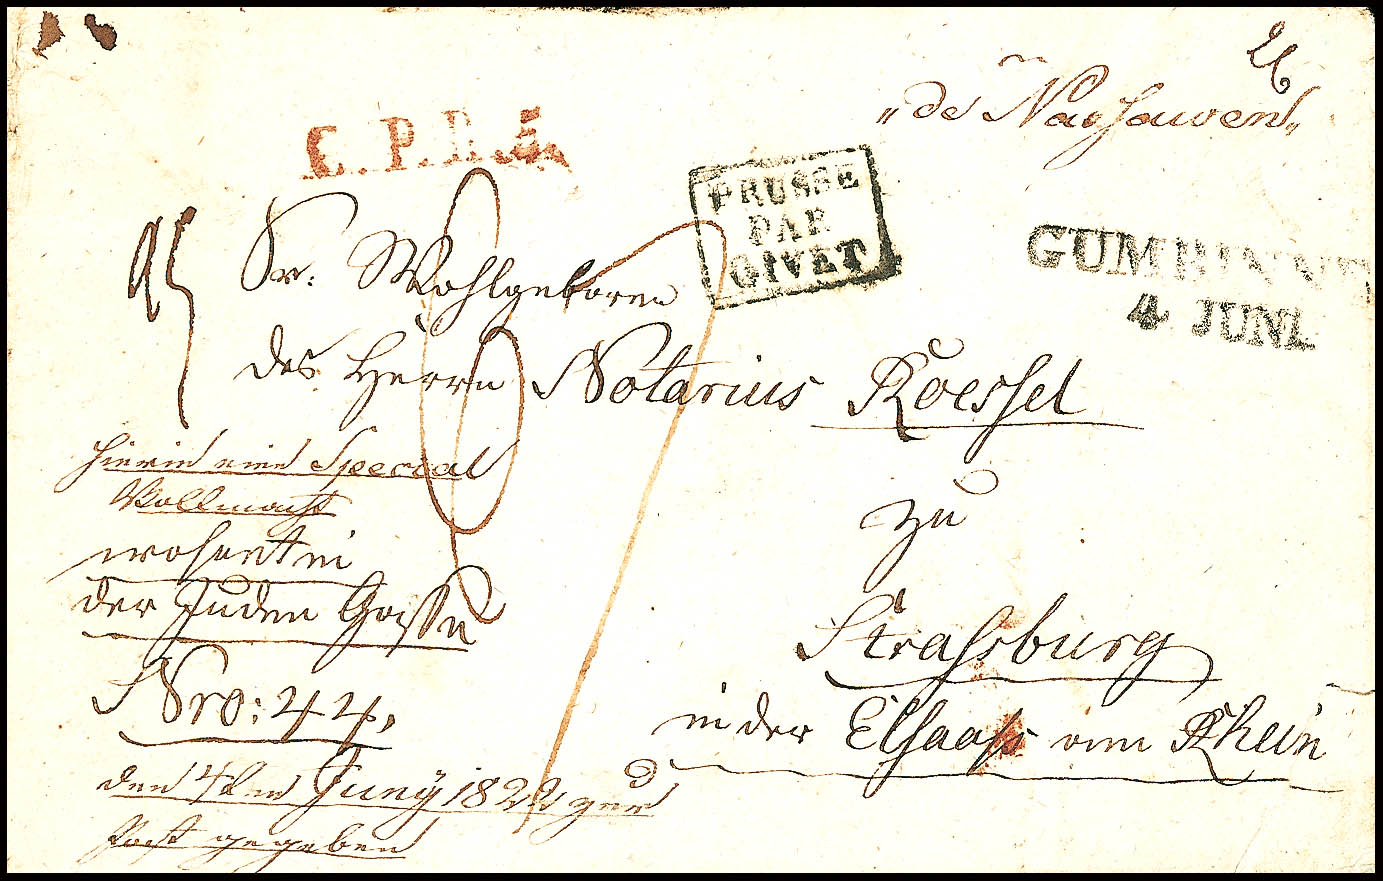 „de Naghawen“
C.P.R.5.
PRUSSE
PAR
GIVET
GUMBINNEN
4 JUNI.
Sr: Wohlgeboren
des Herrn Notarius Koessel
zu
Strassburg
in der Elsaass am Rhein
hierin eine Special
Vollmacht
wohent in
der Juden Gasse
Nro: 44,
den 4ten Juny 1822 zur
Post gegeben